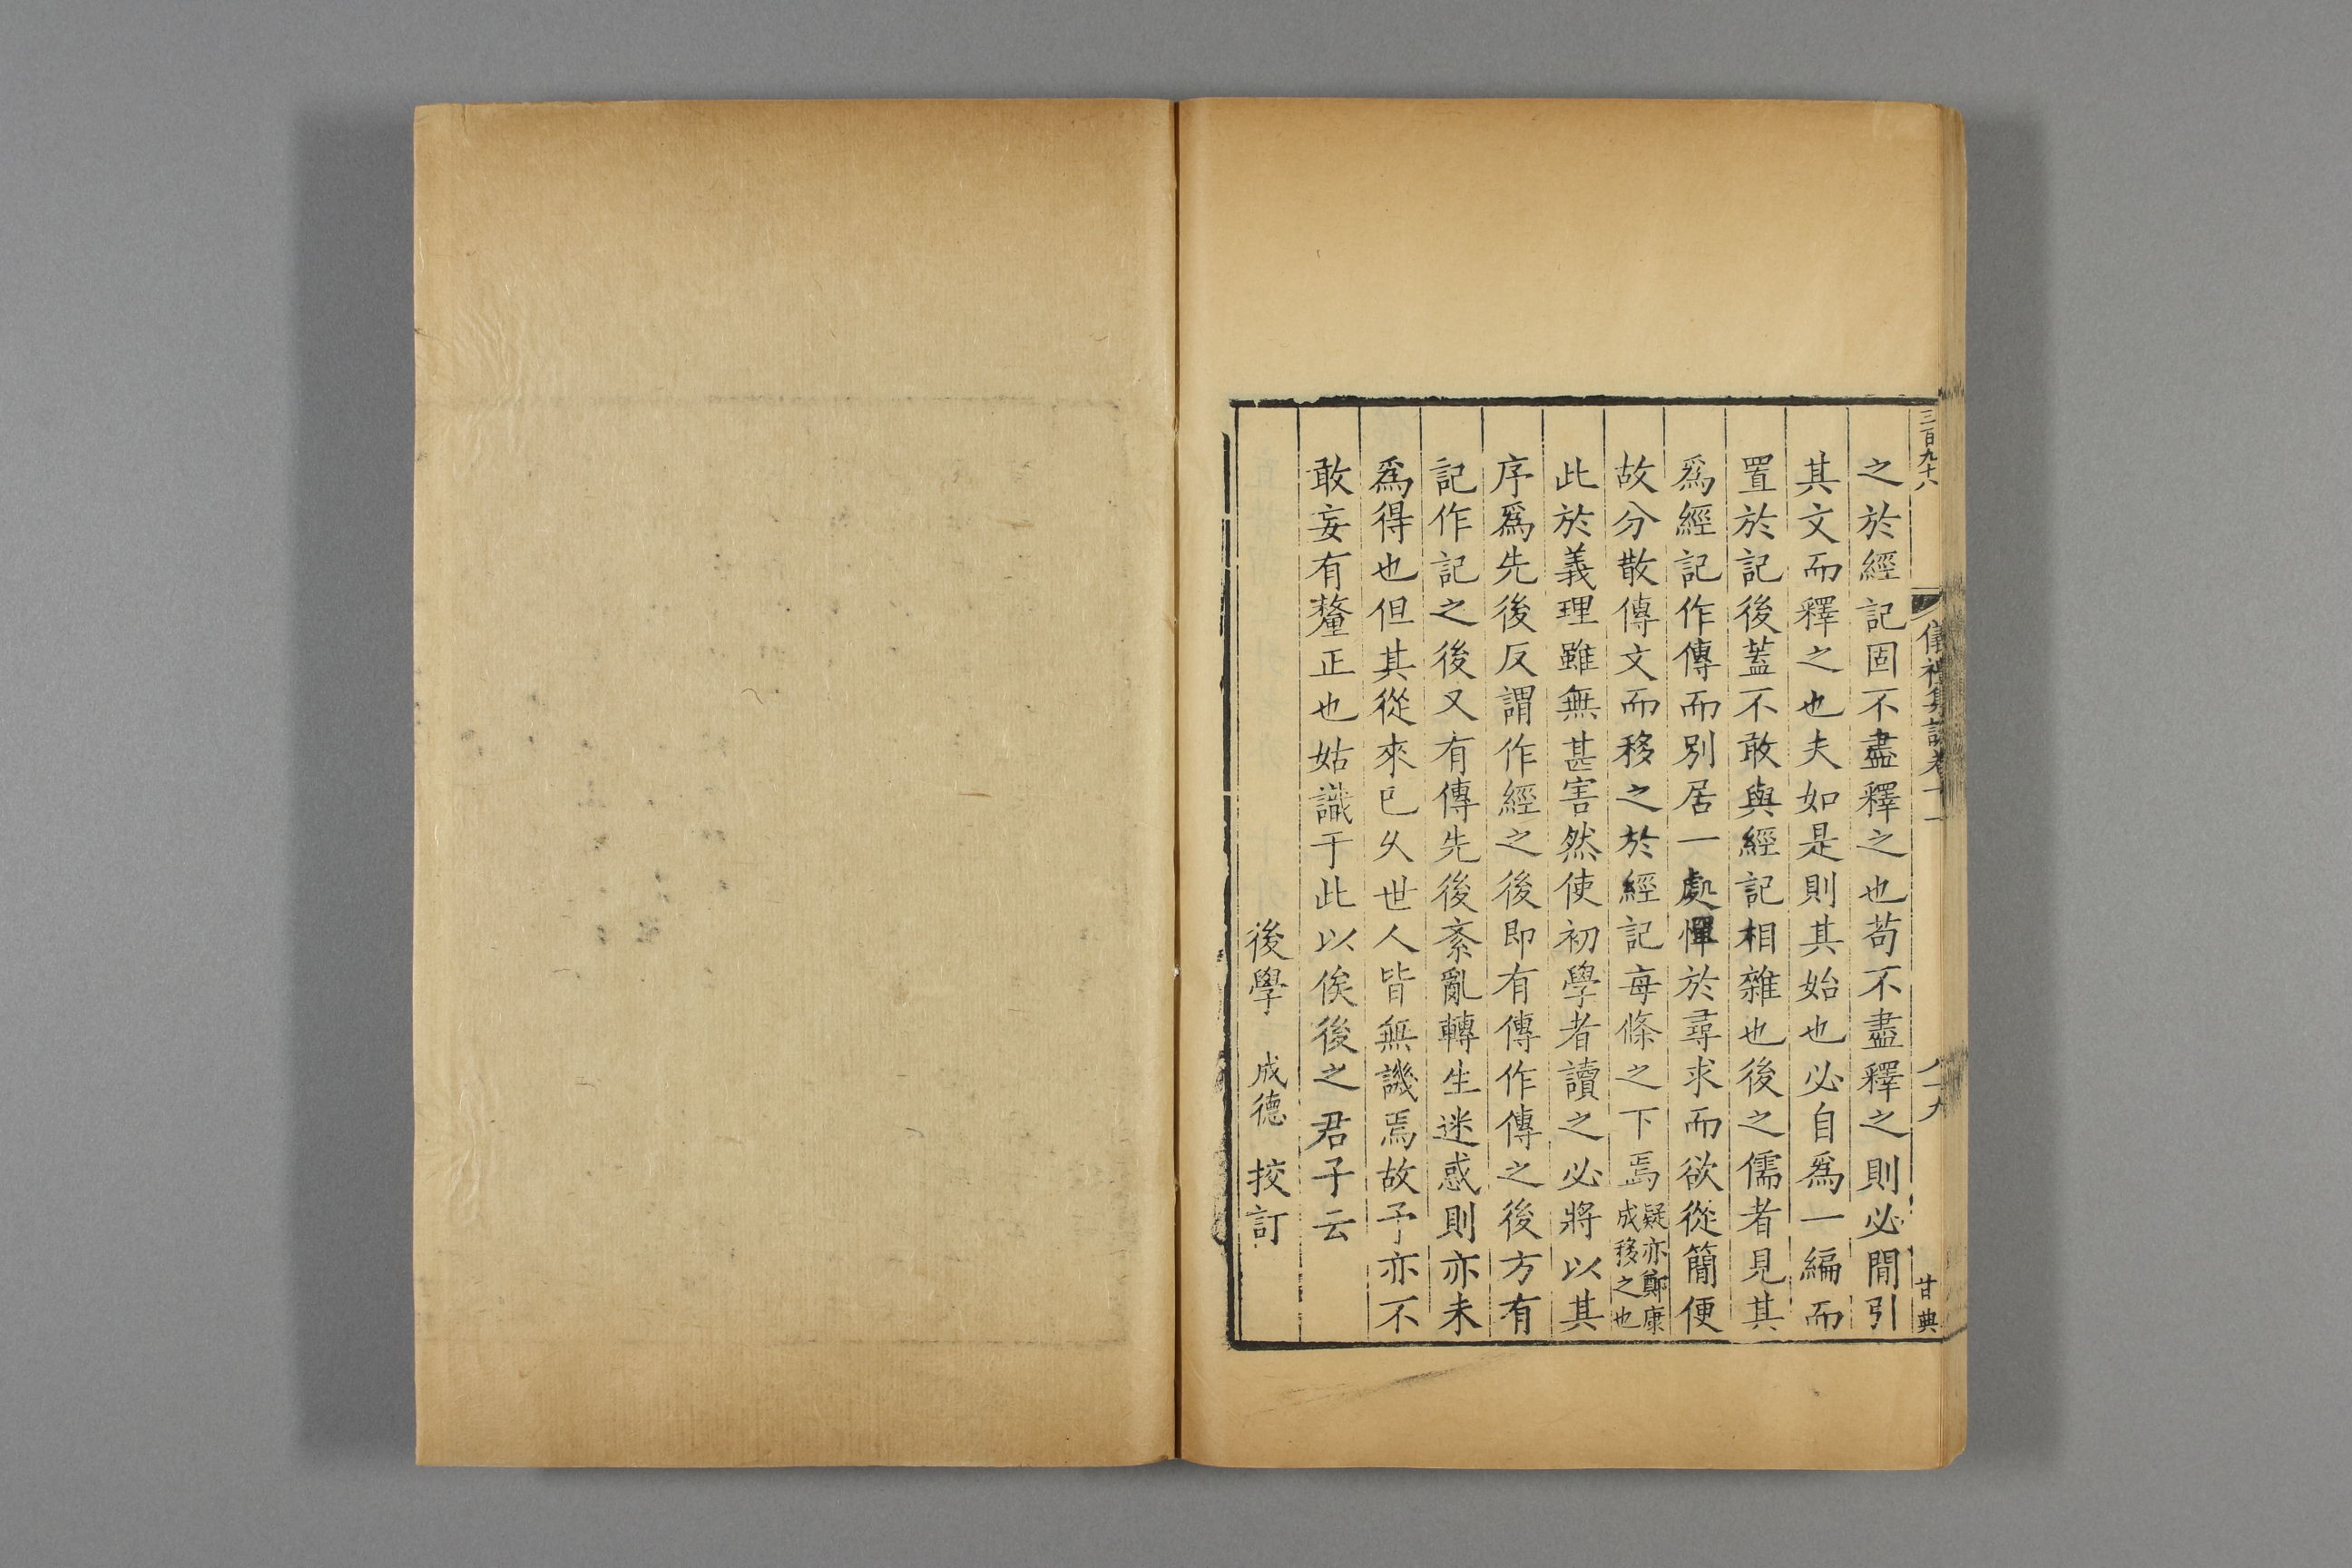 三百九十八
儀禮集說卷十一
八十九
甘典
之於經記固不盡釋之也苟不盡釋之則必閒引
其文而釋之也夫如是則其始也必自爲一編而
置於記後葢不敢與經記相雜也後之儒者見其
爲經記作傳而別居一處憚於尋求而欲從簡便
故分散傳文而移之於經記每條之下焉疑亦鄭康成移之也
此於義理雖無甚害然使初學者讀之必將以其
序爲先後反謂作經之後即有傳作傳之後方有
記作記之後又有傳先後紊亂轉生迷惑則亦未
爲得也但其從來已久世人皆無譏焉故予亦不
敢妄有釐正也姑識于此以俟後之君子云
後學 成德 挍訂